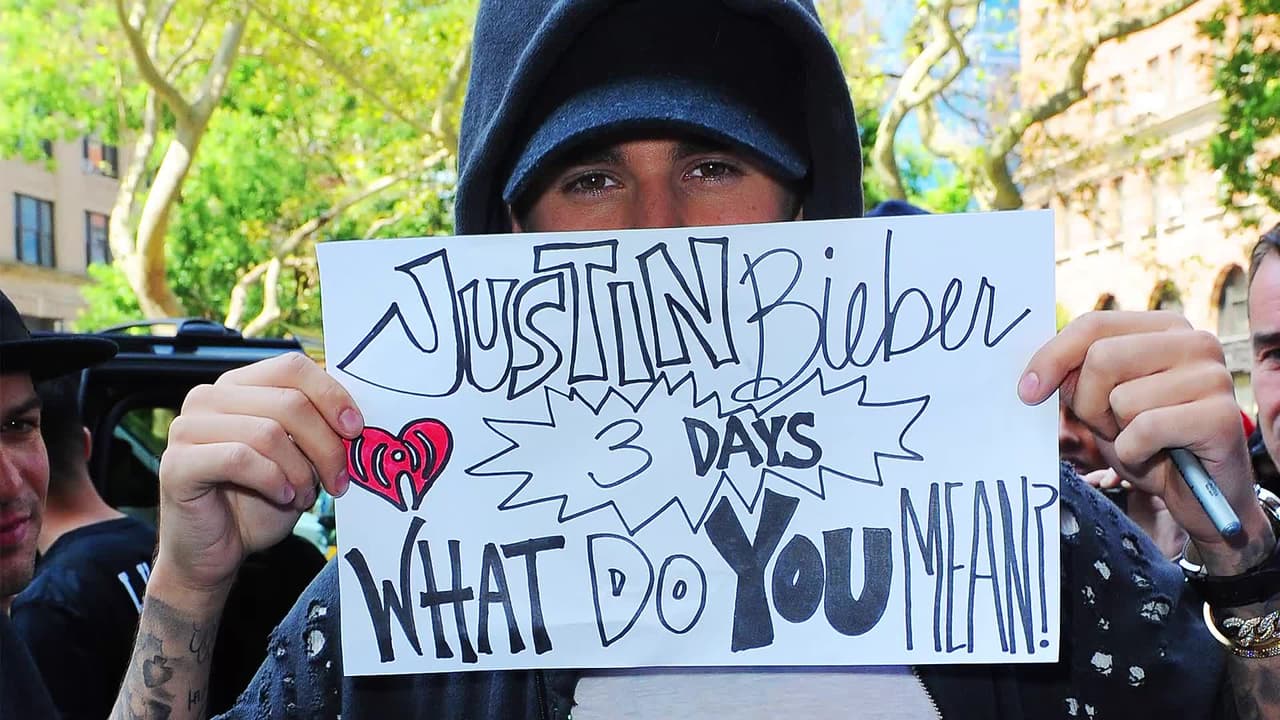 JUSTIN Bieber
3 DAYS
WHAT DO YOU MEAN?